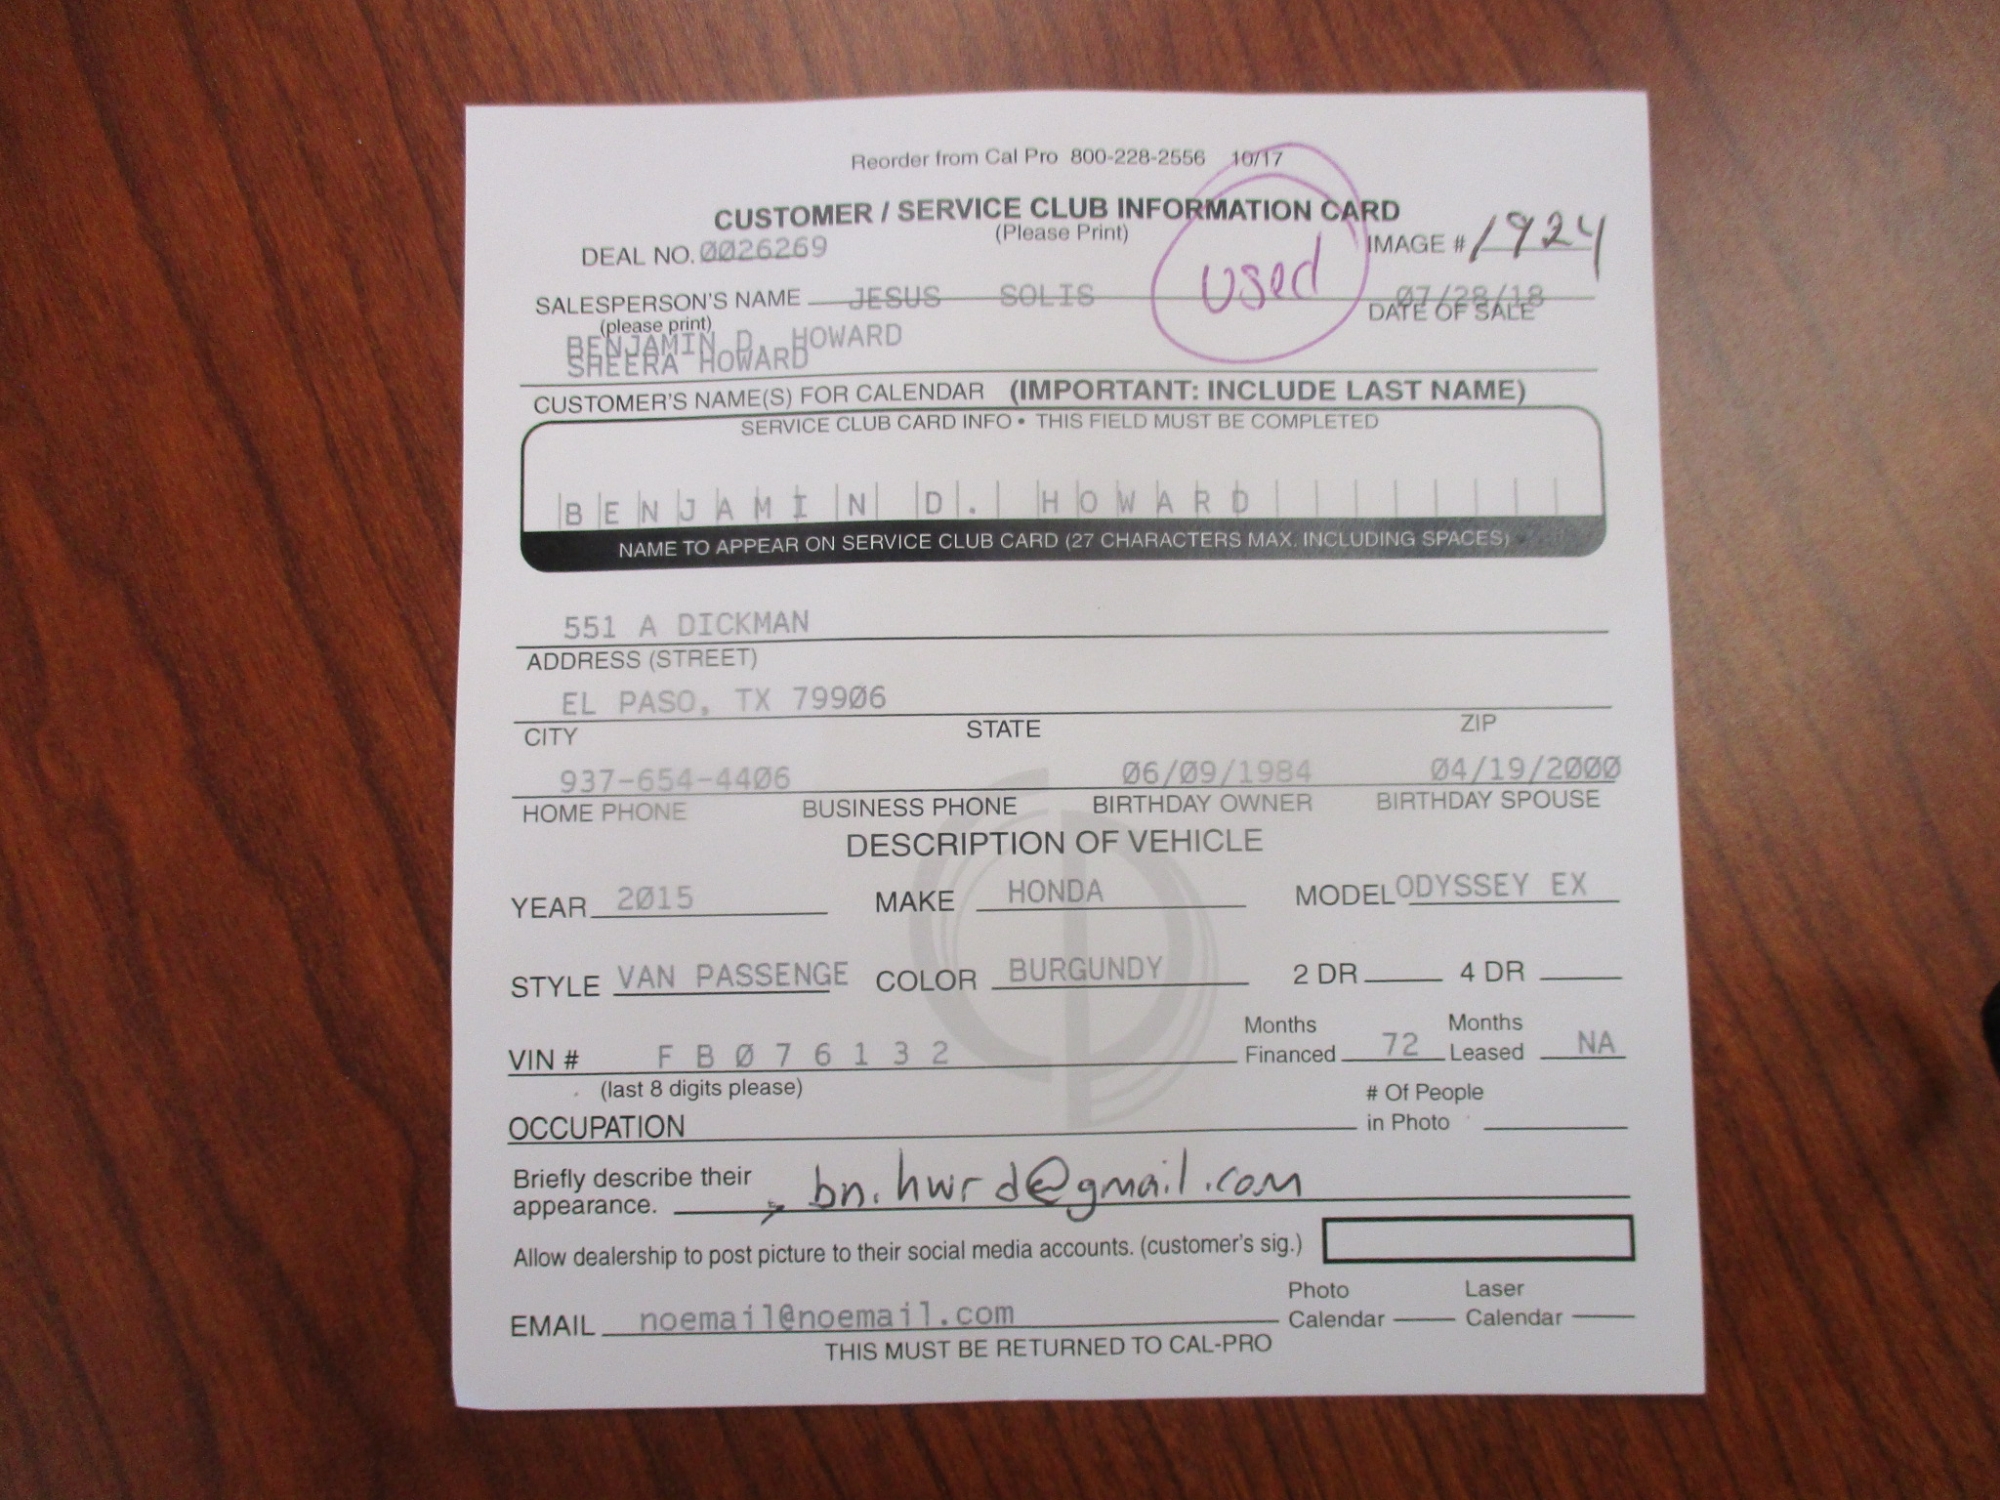 Reorder from Cal Pro 800-228-2556 10/17
CUSTOMER / SERVICE CLUB INFORMATION CARD
(Please Print)
used
DEAL NO. 0026269
IMAGE # 1924
SALESPERSON'S NAME JESUS SOLIS 07/28/18
(please print) DATE OF SALE
BENJAMIN D. HOWARD
SHEERA HOWARD
CUSTOMER'S NAME(S) FOR CALENDAR (IMPORTANT: INCLUDE LAST NAME)
SERVICE CLUB CARD INFO • THIS FIELD MUST BE COMPLETED
BENJAMIN D. HOWARD
NAME TO APPEAR ON SERVICE CLUB CARD (27 CHARACTERS MAX. INCLUDING SPACES)
551 A DICKMAN
ADDRESS (STREET)
EL PASO, TX 79906
CITY STATE ZIP
937-654-4406 06/09/1984 04/19/2000
HOME PHONE BUSINESS PHONE BIRTHDAY OWNER BIRTHDAY SPOUSE
DESCRIPTION OF VEHICLE
YEAR 2015 MAKE HONDA MODEL ODYSSEY EX
STYLE VAN PASSENGE COLOR BURGUNDY 2 DR 4 DR
VIN # F B 0 7 6 1 3 2 Months Financed 72 Months Leased NA
(last 8 digits please)
OCCUPATION # Of People in Photo
Briefly describe their
appearance. bn.hwrd@gmail.com
Allow dealership to post picture to their social media accounts. (customer's sig.)
EMAIL noemail@noemail.com Photo Calendar Laser Calendar
THIS MUST BE RETURNED TO CAL-PRO